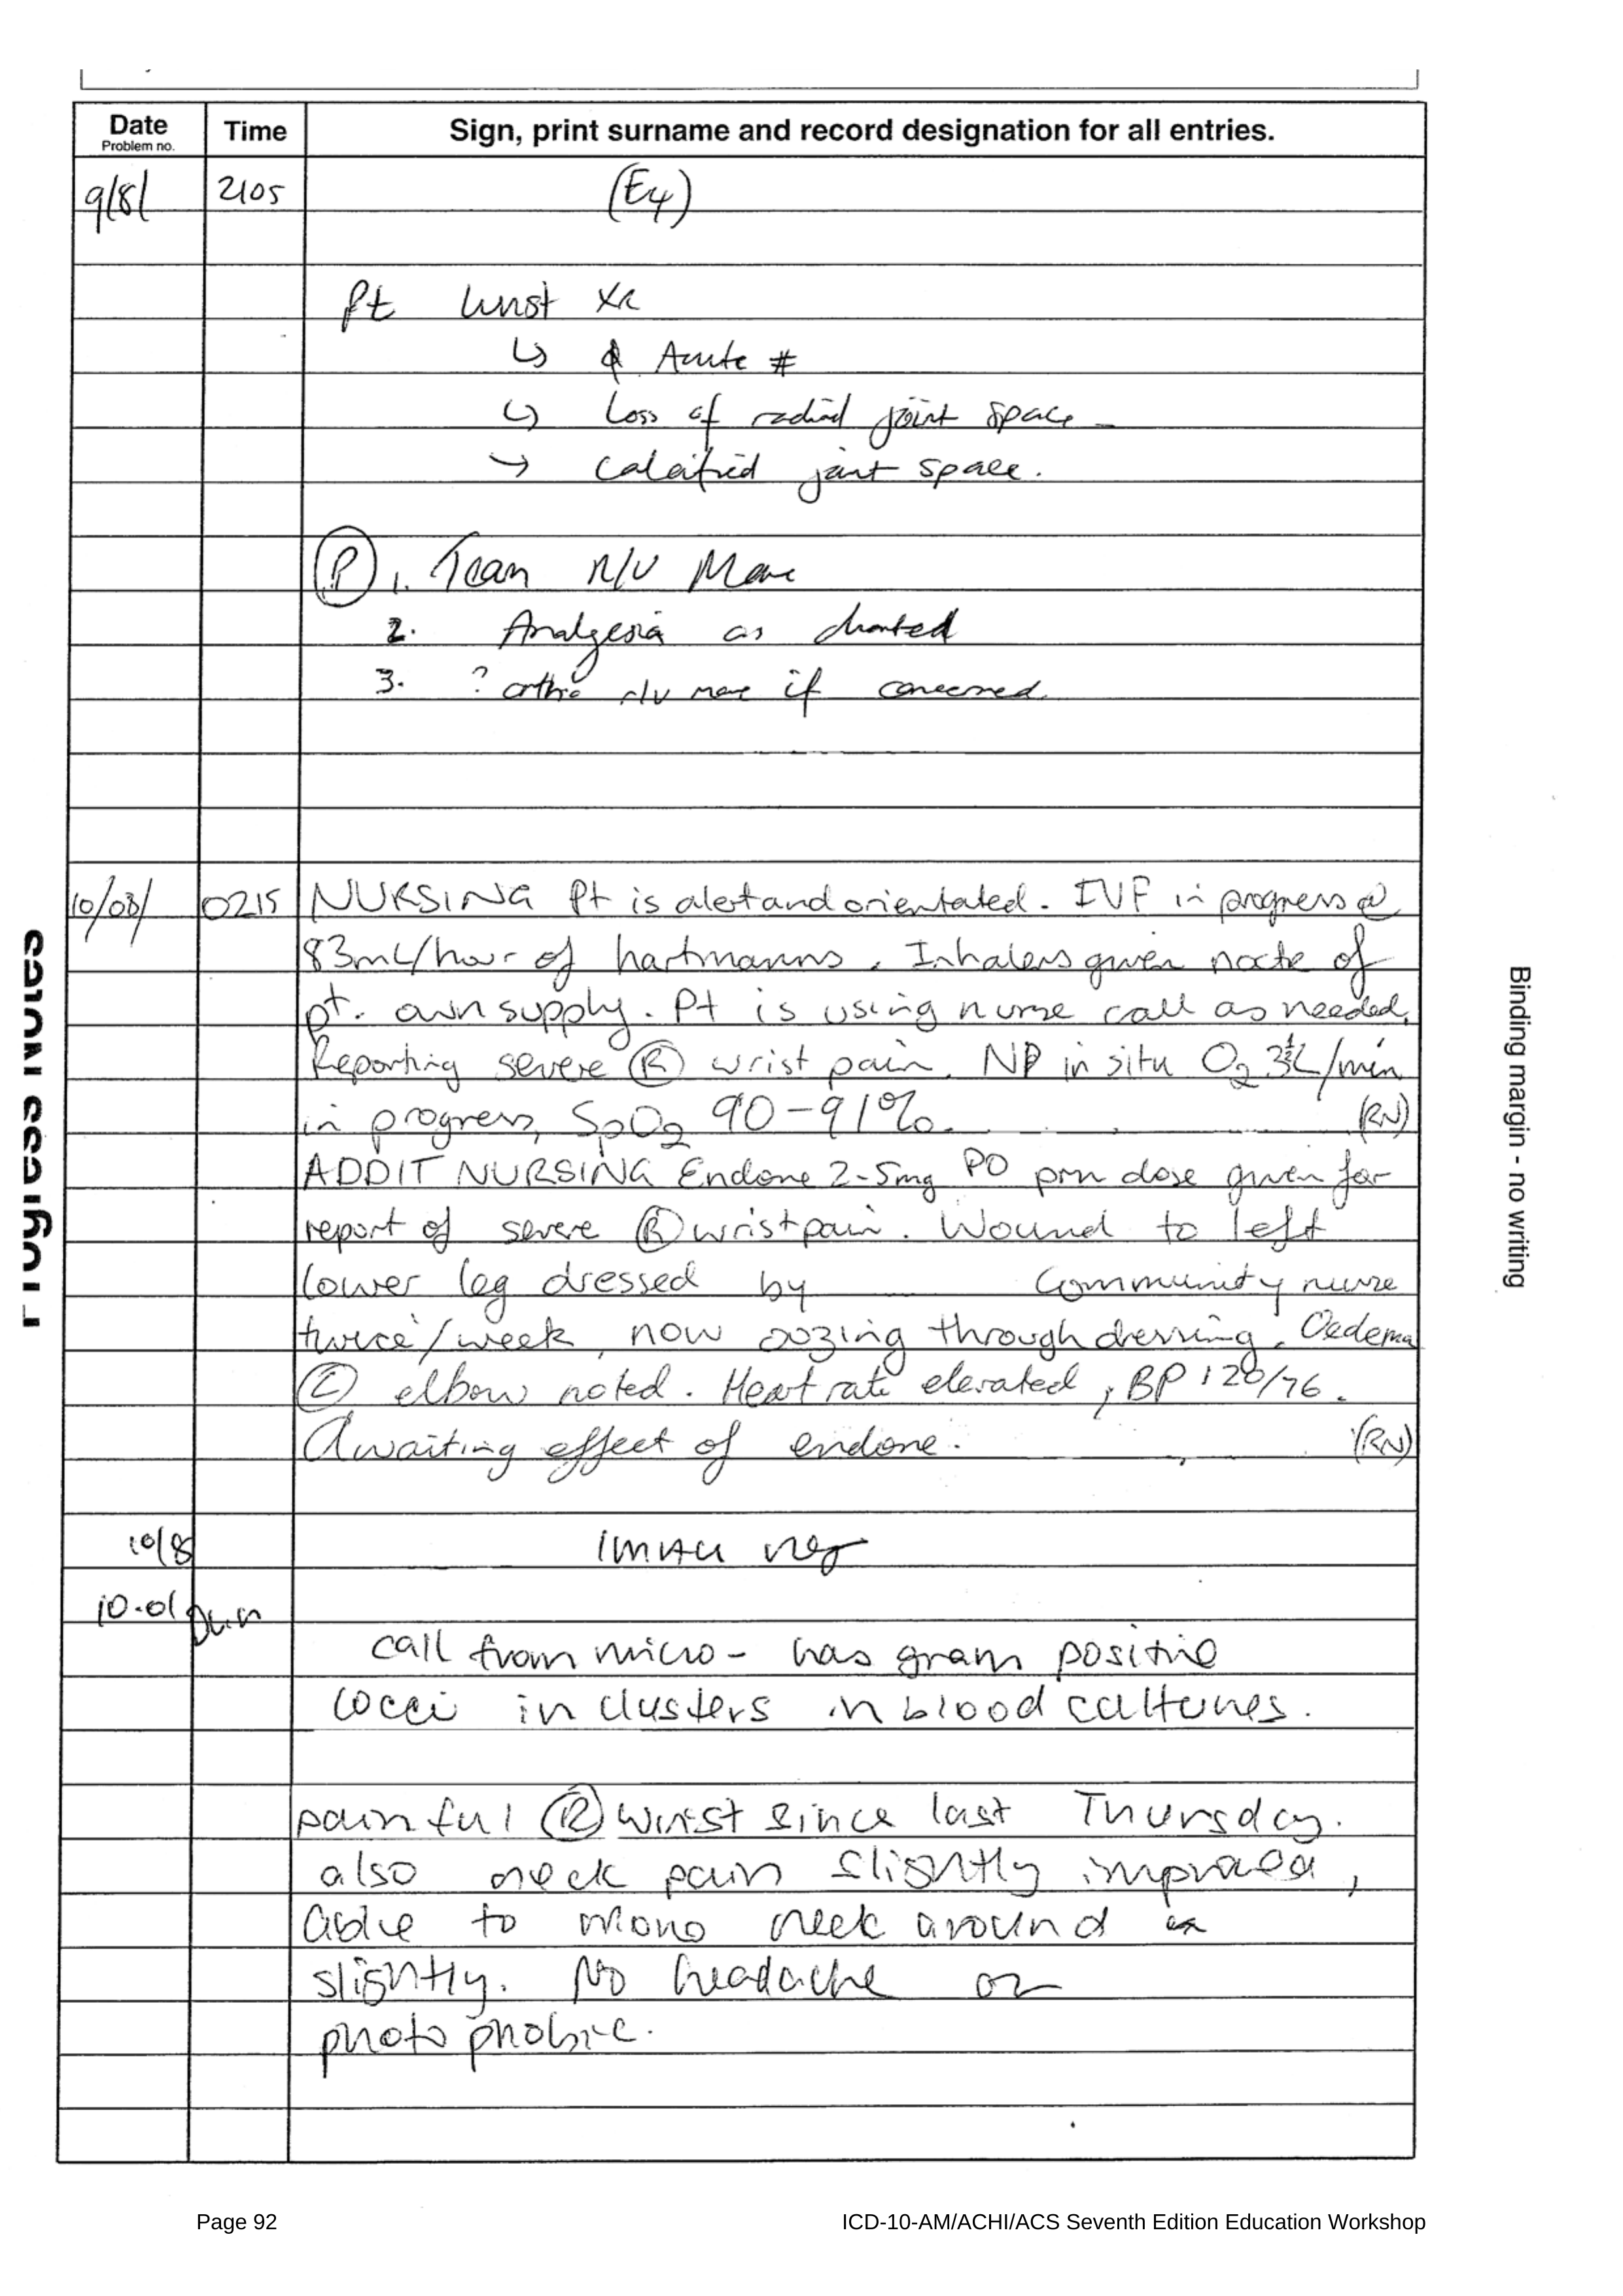 Date
Problem no.
Time
Sign, print surname and record designation for all entries.
9/8/ 2105 (E4)
Pt Wrist XR
↳ Acute #
↳ Loss of radial joint space
→ Calcified joint space.
(P) 1. Team R/V Mane
2. Analgesia as charted
3. ? ortho r/v mane if concerned.
10/08/ 0215 NURSING Pt is alert and orientated. IVF in progress @
83mL/hour of hartmanns. Inhalers given nocte of
pt. own supply. Pt is using nurse call as needed.
Reporting severe (R) wrist pain. NP in situ O2 3½L/min
in progress, SpO2 90-91%. (RN)
ADDIT NURSING Endone 2-5mg PO prn dose given for
report of severe (R) wrist pain. Wound to left
lower leg dressed by Community nurse
twice/week, now oozing through dressing. Oedema
elbow noted. Heart rate elevated, BP 120/76.
Awaiting effect of endone. (RN)
10/8
10.01
call from micro - has gram positive
cocci in clusters in blood cultures.
painful (R) wrist since last Thursday.
also neck pain slightly improved,
able to move neck around
slightly. No headache or
photophobic.
Progress Notes
Binding margin - no writing
Page 92
ICD-10-AM/ACHI/ACS Seventh Edition Education Workshop